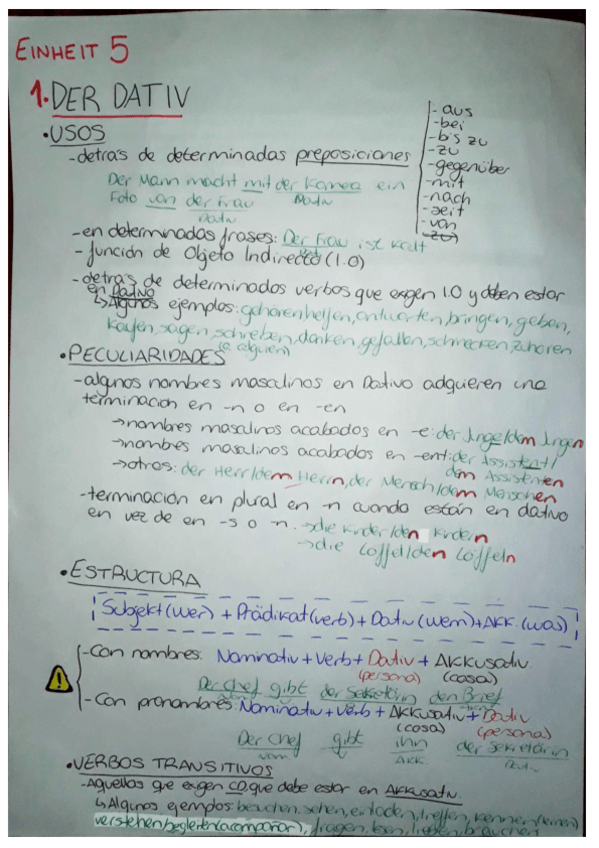 EINHEIT 5
1. DER DATIV
• USOS
- detrás de determinadas preposiciones
- aus
- bei
- bis zu
- zu
- gegenüber
- mit
- nach
- seit
- von
Der Mann macht mit der Kamea ein
Dativ
Foto von der Frau
Dativ
- en determinadas frases: Der Frau ist kalt
- función de Objeto Indirecto (I.O)
- detrás de determinados verbos que exigen I.O y deben estar
en DATIVO
↳ Algunos ejemplos: gehören, helfen, antworten, bringen, geben,
kaufen, sagen, schreiben, danken, gefallen, schmecken, zuhören
(a alguien)
• PECULIARIDADES
- algunos nombres masculinos en Dativo adquieren una
terminación en -n o en -en
→ nombres masculinos acabados en -e: der Junge/dem Jungen
→ nombres masculinos acabados en -ent: der Assistent/
dem Assistenten
→ otros: der Herr/dem Herrn, der Mensch/dem Menschen
- terminación en plural en -n cuando están en dativo
en vez de en -s o -n. → die Kinder/den Kindern
→ die Löffel/den Löffeln
• ESTRUCTURA
Subjekt (wer) + Prädikat (verb) + Dativ (wem) + AKK. (was)
- Con nombres: Nominativ + Verb + Dativ + AKKusativ
(persona) (cosa)
Der Chef gibt der Sekretärin den Brief
- Con pronombres: Nominativ + Verb + AKKusativ + Dativ
(cosa) (persona)
Der Chef gibt ihn der Sekretärin
nom AKK Dativ
• VERBOS TRANSITIVOS
- Aquellos que exigen CD que debe estar en AKKusativ.
↳ Algunos ejemplos: besuchen, sehen, einladen, treffen, kennen(lernen)
verstehen, begleiten (acompañar), fragen, lesen, lieben, brauchen